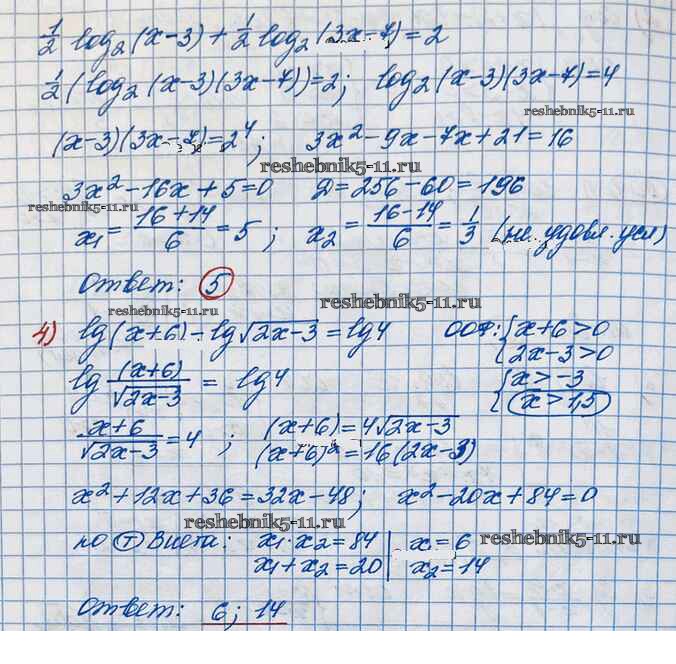 1/2 log₂(x-3) + 1/2 log₂(3x-7) = 2
1/2(log₂(x-3)(3x-7)) = 2; log₂(x-3)(3x-7) = 4
reshebnik5-11.ru
(x-3)(3x-7) = 2⁴; 3x² - 9x - 7x + 21 = 16
reshebnik5-11.ru
3x² - 16x + 5 = 0 D = 256 - 60 = 196
x₁ = (16+14)/6 = 5; x₂ = (16-14)/6 = 1/3 (не удовл. усл)
Ответ: 5
reshebnik5-11.ru
reshebnik5-11.ru
4) lg(x+6) - lg√(2x-3) = lg4 ООФ: {x+6>0
{2x-3>0
lg (x+6)/√(2x-3) = lg4 {x>-3
{x>1,5
(x+6)/√(2x-3) = 4; (x+6) = 4√(2x-3)
(x+6)² = 16(2x-3)
x² + 12x + 36 = 32x - 48; x² - 20x + 84 = 0
reshebnik5-11.ru
по Т Виета: x₁·x₂ = 84 | x₁ = 6
reshebnik5-11.ru
x₁ + x₂ = 20 | x₂ = 14
Ответ: 6; 14